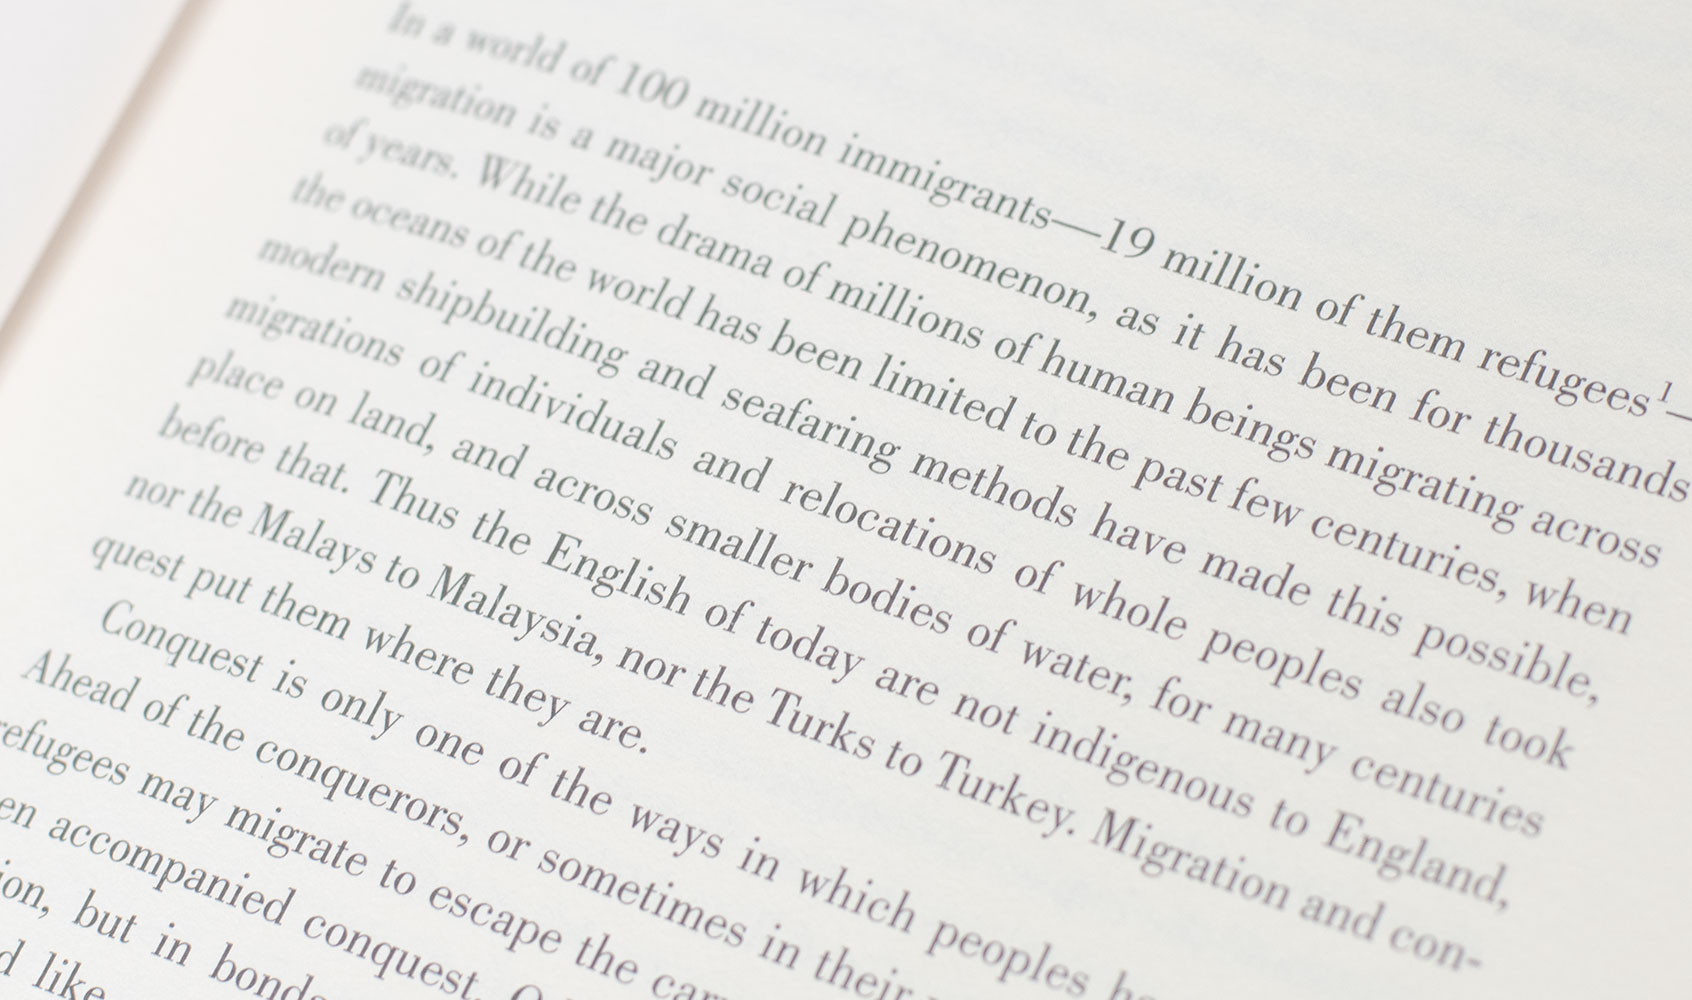 In a world of 100 million immigrants—19 million of them refugees¹—
migration is a major social phenomenon, as it has been for thousands
of years. While the drama of millions of human beings migrating across
the oceans of the world has been limited to the past few centuries, when
modern shipbuilding and seafaring methods have made this possible,
migrations of individuals and relocations of whole peoples also took
place on land, and across smaller bodies of water, for many centuries
before that. Thus the English of today are not indigenous to England,
nor the Malays to Malaysia, nor the Turks to Turkey. Migration and con-
quest put them where they are.
Conquest is only one of the ways in which peoples
Ahead of the conquerors, or sometimes in their
refugees may migrate to escape the
accompanied conquest.
but in
like